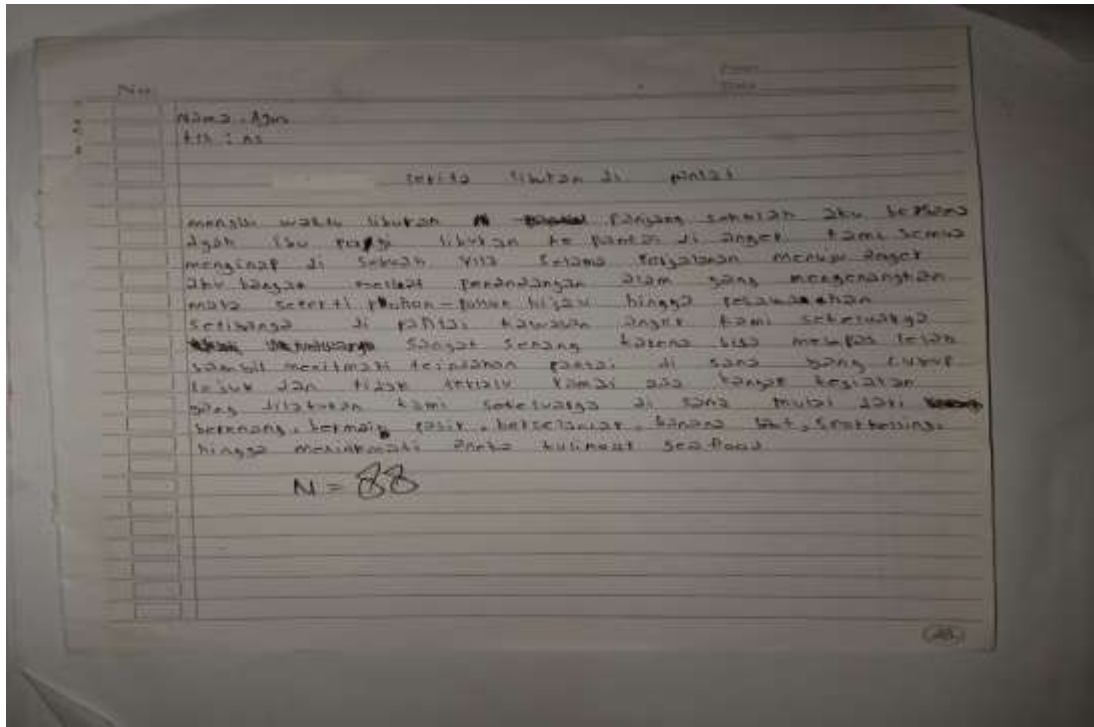 No.
Date
Nama : Agus
cerita libutan di pantai
mengisi waktu libutan panjang sekolah aku bersama
ayah ibu pergi libutan ke pantai di anyer kami semua
menginap di sebuah vila selama perjalanan menuju anyer
aku banyak melihat pemandangan alam yang mengenangkan
mata seperti pohon-pohon hijau hingga pesawahan
setibanya di pantai kawasan anyer kami sekeluarga
sangat senang karena bisa melepas lelah
sambil menikmati keindahan pantai di sana yang cukup
sejuk dan tidak terlalu ramai ada banyak kegiatan
yang dilakukan kami sekeluarga di sana mulai dari
berenang, bermain pasir, berselancar, banana boat,
hingga menikmati aneka kulineat seafood
N = 88